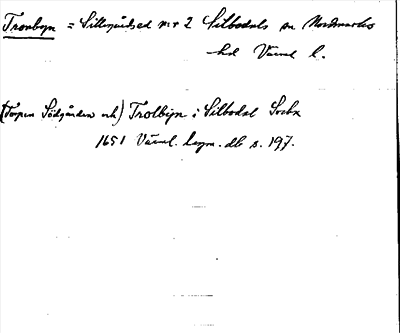 Tronbyn = Sillegårdsed n:r 2 Silbodals sn Nordmarks
hd Värml l.
(Torpen Södgården och) Trolbyn i Silbodal Socka
1651 Värml. lagm. db s. 197.